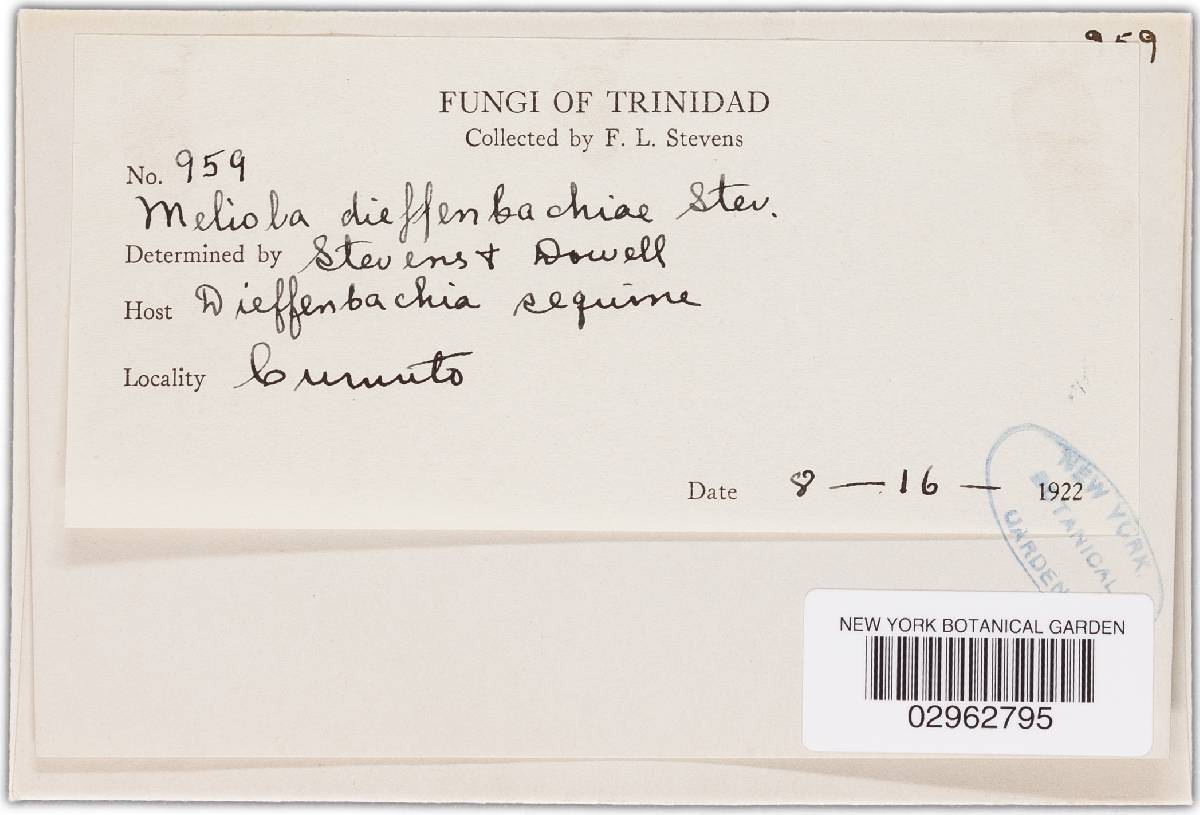 959
FUNGI OF TRINIDAD
Collected by F. L. Stevens
No. 959
Meliola dieffenbachiae Stev.
Determined by Stevens + Dowell
Host Dieffenbachia sequine
Locality Cumuto
Date 8 — 16 — 1922
NEW YORK
BOTANICAL
GARDEN
NEW YORK BOTANICAL GARDEN
02962795